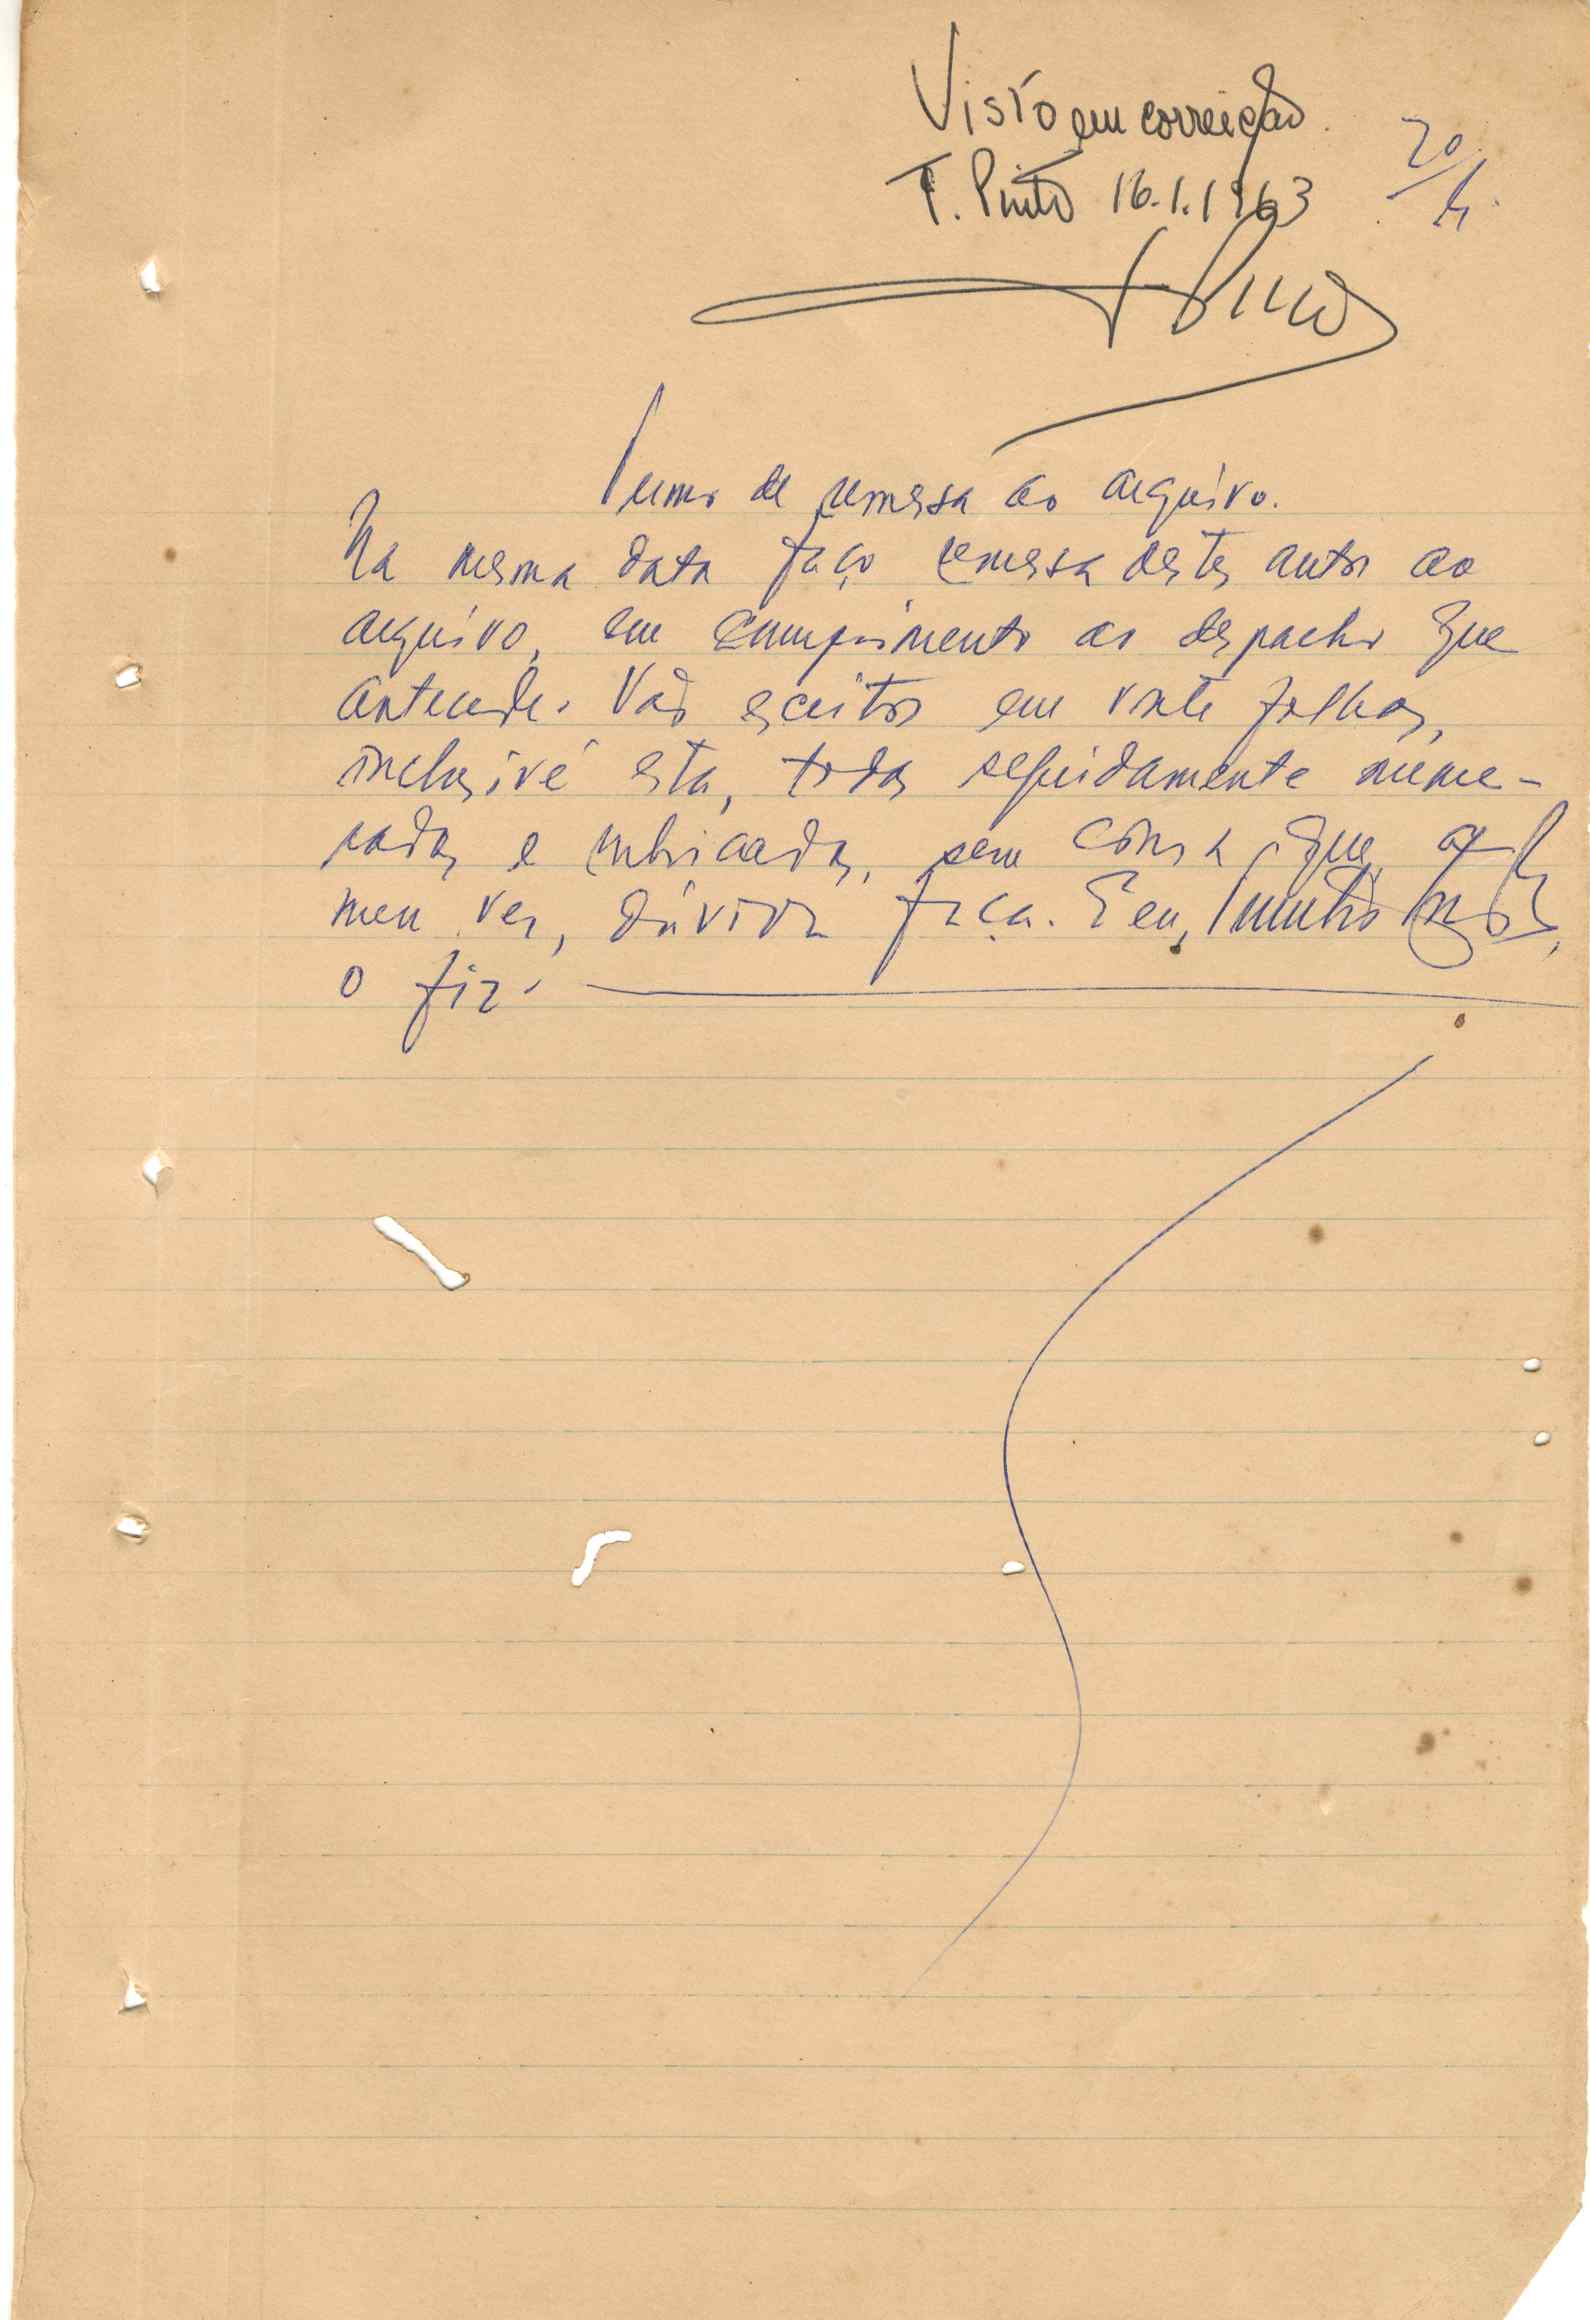 Visto em correição.
F. Pinto 16.1.1963
20
Termo de remessa ao arquivo.
Na mesma data faço remessa destes autos ao
arquivo, em cumprimento ao despacho que
antecede. Vão escritos em vinte folhas,
inclusivé esta, todas seguidamente nume-
radas e rubricadas, sem coisa que, a
meu ver, dúvida faça. E eu,
o fiz.